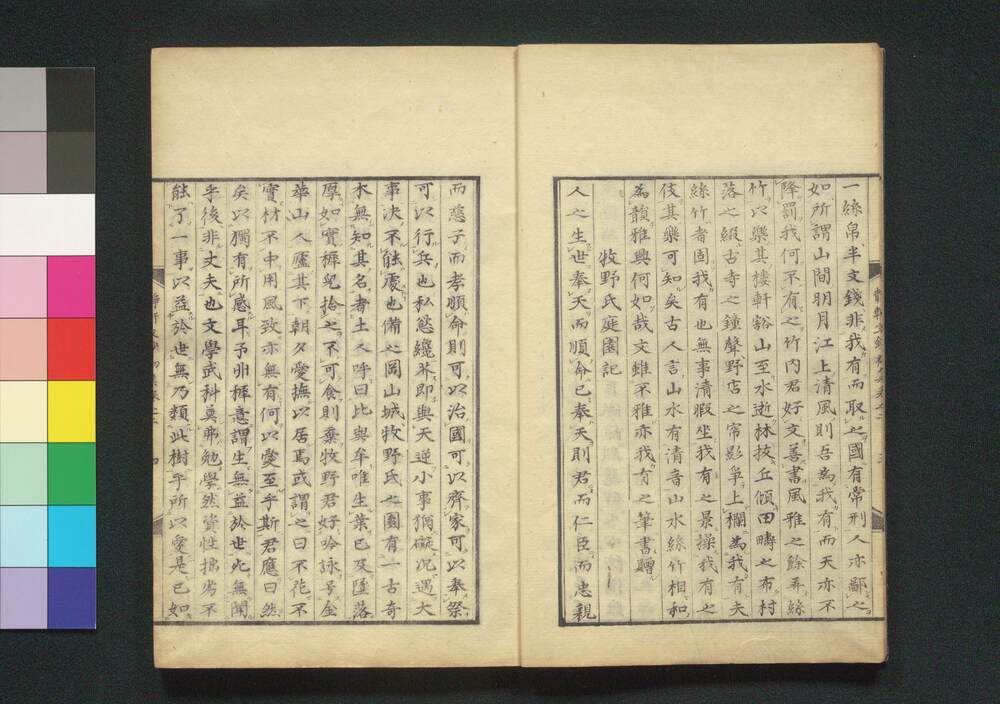 一絲帛半文錢非我有而取之國有常刑人亦鄙之
如所謂山間明月江上清風則吾為我有而天亦不
降罰我何不有之竹內君好文善書風雅之餘弄絲
竹以樂其樓軒谿山至水逝林拔丘傾田疇之布村
落之綴古寺之鐘聲野店之帘影爭上欄為我有夫
絲竹者固我有也無事清暇坐我有之景操我有之
伎其樂可知矣古人言山水有清音山水絲竹相和
為韻雅興何如哉文雖不雅亦我有之筆書贈
牧野氏庭園記
人之生世奉天而順命已奉天則君而仁臣而忠親
而慈子而孝順命則可以治國可以齊家可以奉祭
可以行兵也私慾纔芥即與天逆小事猶礙況遇大
事决不能處也備之岡山城牧野氏之園有一古奇
木無知其名者土人呼曰比與牟唯生葉已及墮落
厚如實榧兒拾之不可食則棄牧野君好吟詠号金
華山人廬其下朝夕愛撫以居焉或謂之曰不花不
實材不中用風致亦無有何以愛至乎斯君應曰然
矣以獨有所感耳予丱穉意謂生無益於世死無聞
乎後非丈夫也文學武科莫弗勉學然資性拙劣不
能了一事以益於世無乃類此樹乎所以愛是已如